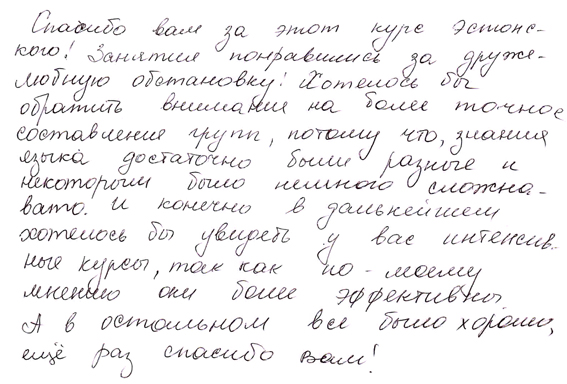 Спасибо вам за этот курс эстонс-
кого! Занятия понравились за друже-
любную обстановку! Хотелось бы
обратить внимание на более точное
составление групп, потому что, знания
языка достаточно были разные и
некоторым было немного сложно-
вато. И конечно в дальнейшем
хотелось бы увидеть у вас интенсив-
ные курсы, так как по-моему
мнению они более эффективны.
А в остальном все было хорошо,
ещё раз спасибо вам!